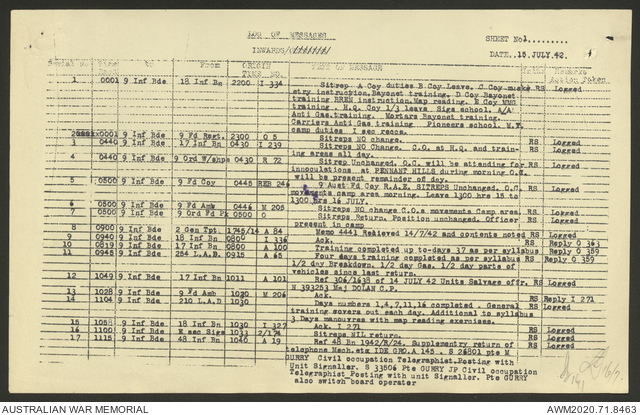 LOG OF MESSAGES
SHEET No1.........
INWARDS/
DATE..15.JULY.42.
Serial No. Time to From ORIGIN TIME NO. GIST OF MESSAGE Action Taken
1 0001 9 Inf Bde 18 Inf Bn 2200 I 334 Sitrep A Coy duties B Coy Leave. C Coy musk RS Logged
etry instruction,Bayonet training. D Coy Bayonet
training BREN instruction.Map reading. E Coy MMG
training . H.Q. Coy 1/3 leave. Sigs school. A/A:
Anti Gas.training. Mortars Bayonet training.
Carriers Anti Gas training Pioneers school. M.T.
camp duties I sec recce.
2 0001 9 Inf Bde 9 Fd Regt. 2300 O 5 Sitreps NO change. RS Logged
3 0440 9 Inf Bde 17 Inf Bn 0430 I 239 Sitreps NO Change. C.O. at H.Q. and train- RS Logged
ing areas all day.
4 0440 9 Inf Bde 9 Ord W/shps 0430 R 72 Sitrep Unchanged. O.C. will be attending for RS Logged
innoculations at PENNANT HILLS during morning O.C.
will be present remainder of day.
5 0500 9 Inf Bde 9 Fd Coy 0445 REB 246 9 Aust Fd Coy R.A.E. SITREPS Unchanged. O.C. RS Logged
movements camp area morning. Leave 1300 hrs 15 to
1300 hrs 16 JULY.
6 0500 9 Inf Bde 9 Fd Amb 0446 M 205 Sitreps NO change C.O.s movements Camp area. RS Logged
7 0500 9 Inf Bde 9 Ord Fd Pk 0500 O Sitreps Returned. Position unchanged. Officer RS Logged
present in camp
8 0900 9 Inf Bde 2 Gen Tpt. 1745/14 A 84 Memo 4441 Recieved 14/7/42 and contents noted RS Logged
9 0940 9 Inf Bde 18 Inf Bn 0800 I 336 Ack. RS Reply O 363
10 0819 9 Inf Bde 17 Inf Bn 0800 A 100 Training completed up to-days 37 as per syllabus RS Reply O 359
11 0945 9 Inf Bde 254 L.A.D. 0915 A 65 Four days training completed as per syllabus RS Reply O 359
1/2 day Breakdown. 1/2 day Gas. 1/2 day parts of
vehicles since last return.
12 1049 9 Inf Bde 17 Inf Bn 1011 A 101 Ref 306/1638 of 14 JULY 42 Units Salvage offr. RS Logged
N 393253 Maj DOLAN C.P.
13 1028 9 Inf Bde 9 Fd Amb 1020 M 206 Ack. RS Logged
14 1104 9 Inf Bde 210 L.A.D 1030 Days numbers 1,4,7,11,16 completed . General RS Reply I 271
training covers out each day. Additional to syllabus
3 Days manouvres with map reading exercises.
15 1058 9 Inf Bde 18 Inf Bn 1030 I 327 Ack. I 271 RS Logged
16 1100 9 Inf Bde E sec Sigs 1033 2/174 Sitreps NIL return. RS Logged
17 1115 9 Inf Bde 48 Inf Bn 1040 A 19 Ref 48 Bn 1942/R/24. Supplementry return of RS Logged
telephone Mech.etc IDE GRO.A 145 . S 26801 pte M
GURRY Civil occupation Telegraphist.Posting with
Unit Signaller. S 33506 Pte GURRY JP Civil occupation
Telegraphist Posting with unit Signaller. Pte GURRY
also switch board operator
AUSTRALIAN WAR MEMORIAL
AWM2020.71.8463